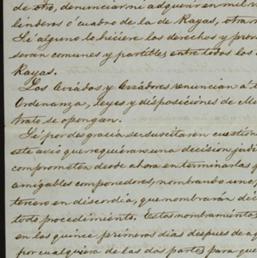 de oto, denunciarmi adquvir en mil
linderos ó cuadro de la de Rayas, otra
Si alguno lo hiciere los derechos y pro
seran comunes y partibles entre todos los
Rayas.
Los Criados y Criadores renuncian á t
Ordenanza, leyes y disposiciones de Mi
trato se opongan.
Si por desgracia se suscitaren cuestion
este avio que requieran una decision judi
comprometen desde ahora en terminarlas
amigables componedores, nombrando uno,
tercero en discordia, que nombrarán de
todo procedimiento. Estos nombramiento
en los quince primeros dias despues de a
por cualquiera de las dos partes para que